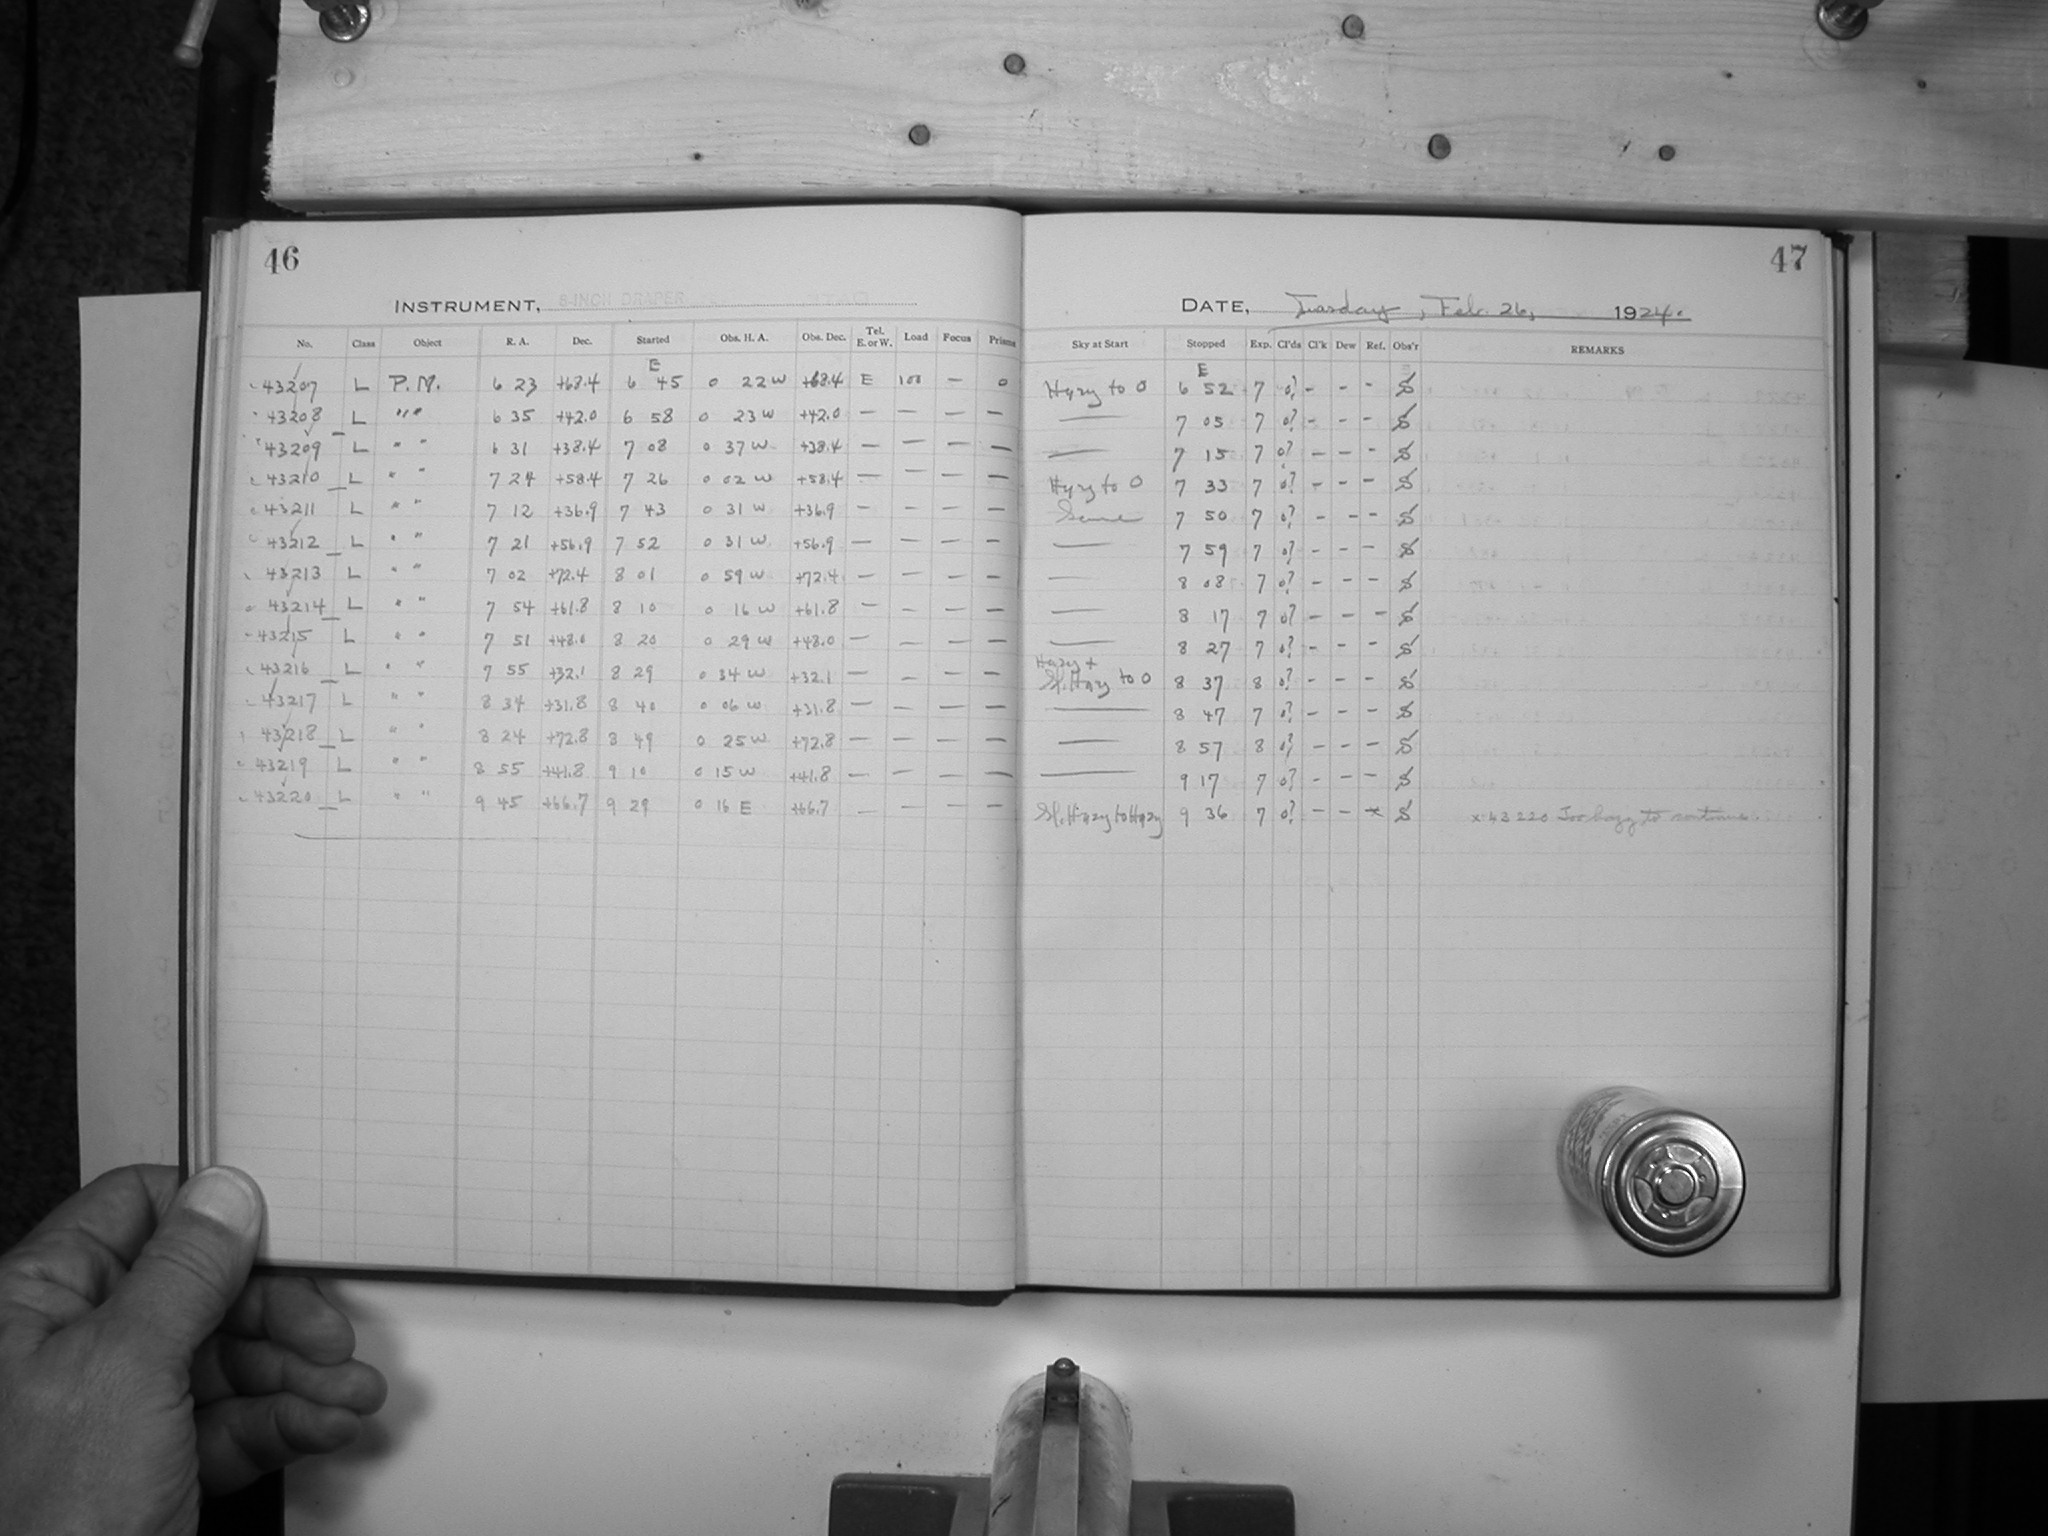 46
INSTRUMENT, 8-INCH DRAPER
No. Class Object R. A. Dec. Started Obs. H. A. Obs. Dec. Tel. E. or W. Load Focus Prisms
E
43207 L P.M. 6 23 +68.4 6 45 0 22 W +68.4 E 100 — 0
43208 L " " 6 35 +42.0 6 58 0 23 W +42.0 — — — —
43209 L " " 6 31 +38.4 7 08 0 37 W +38.4 — — — —
43210 L " " 7 24 +58.4 7 26 0 02 W +58.4 — — — —
43211 L " " 7 12 +36.9 7 43 0 31 W +36.9 — — — —
43212 L " " 7 21 +56.9 7 52 0 31 W +56.9 — — — —
43213 L " " 7 02 +72.4 8 01 0 59 W +72.4 — — — —
43214 L " " 7 54 +61.8 8 10 0 16 W +61.8 — — — —
43215 L " " 7 51 +48.0 8 20 0 29 W +48.0 — — — —
43216 L " " 7 55 +32.1 8 29 0 34 W +32.1 — — — —
43217 L " " 8 34 +31.8 8 40 0 06 W +31.8 — — — —
43218 L " " 8 24 +72.8 8 49 0 25 W +72.8 — — — —
43219 L " " 8 55 +41.8 9 10 0 15 W +41.8 — — — —
43220 L " " 9 45 +66.7 9 29 0 16 E +66.7 — — — —
47
DATE, Tuesday, Feb. 26, 1924.
Sky at Start Stopped Exp. Cl'ds Cl'k Dew Ref. Obs'r REMARKS
E
Hazy to 0 6 52 7 0? - - - S
— 7 05 7 0? - - - S
— 7 15 7 0? - - - S
Hazy to 0 7 33 7 0? - - - S
Same 7 50 7 0? - - - S
— 7 59 7 0? - - - S
— 8 08 7 0? - - - S
— 8 17 7 0? - - - S
— 8 27 7 0? - - - S
Hazy +
Sl. Hazy to 0 8 37 8 0? - - - S
— 8 47 7 0? - - - S
— 8 57 8 0? - - - S
— 9 17 7 0? - - - S
Sl. Hazy to Hazy 9 36 7 0? - - x S x 43220 Too hazy to continue.